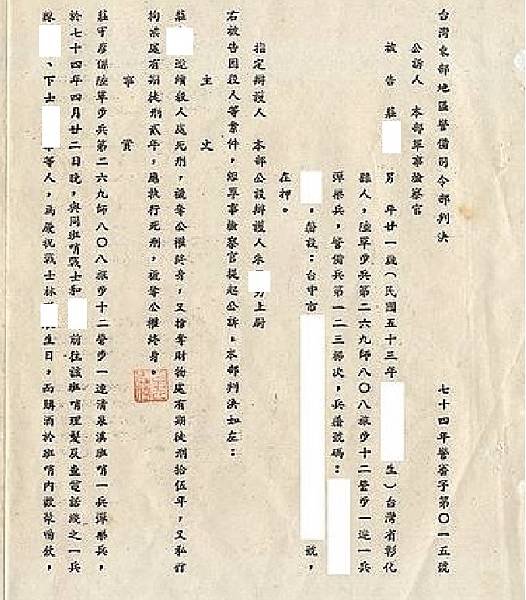 台灣東部地區警備司令部判決 七十四年警審字第〇一五號
公訴人 本部軍事檢察官
被告 莊 男 年廿一歲(民國五十三年 生)台灣省彰化
縣人,陸軍步兵第二六九師八〇八旅步十二營步一連一兵
彈藥兵,警備兵第一二三梯次,兵籍號碼:
,籍設:台中市 號,
在押。
指定辯護人 本部公設辯護人朱 上尉
右被告因殺人等案件,經軍事檢察官提起公訴,本部判決如左:
主文
莊 連續殺人處死刑,褫奪公權終身,又搶奪財物處有期徒刑拾伍年,又私行
拘禁處有期徒刑貳年,應執行死刑,褫奪公權終身。
事實
莊 係陸軍步兵第二六九師八〇八旅步十二營步一連清泉溪班哨一兵彈藥兵,
於七十四年四月廿二日晚,與同班哨戰士和 前往該班哨理髮及查電話線之一兵
、下士 等人,為慶祝戰士林 生日,而購酒於班哨內歡聚喝飲,